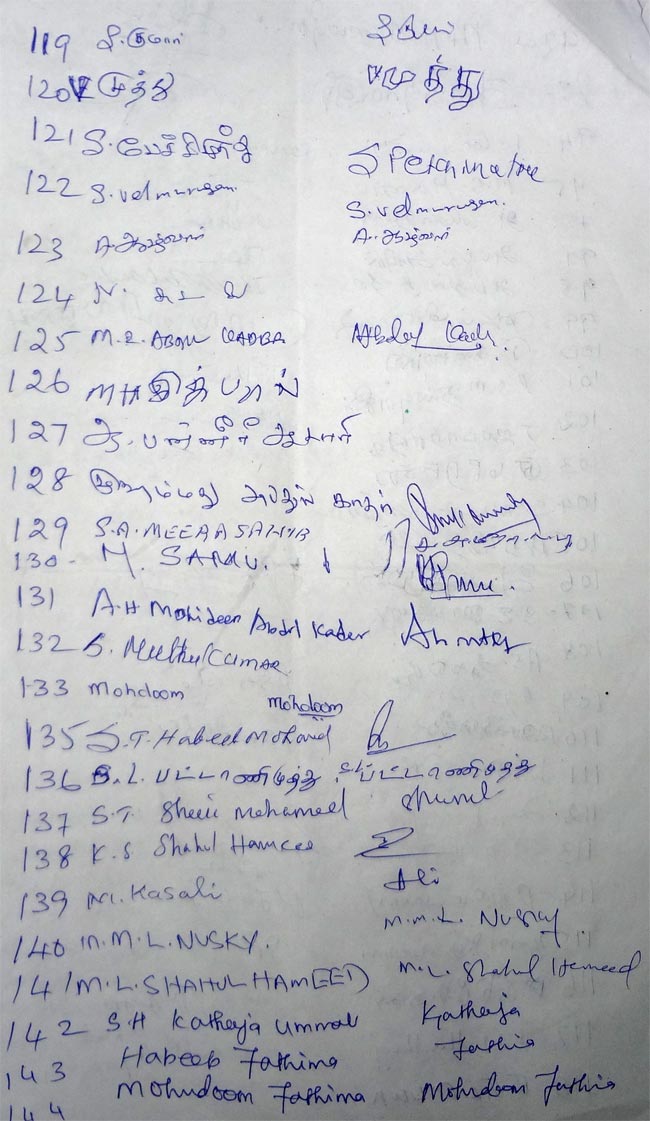 119 சி.குமார்
120 முத்து முத்து
121 S.பேச்சிமுத்து S Petchimuthu
122 S.velmurugan. S.velmurugan.
123 A.ஆழ்வார் A.ஆழ்வார்
124 N. சுடலை
125 M.S.ABDUL KADER Abdul Kader
126
127 ஆ.பன்னீர் ஆசாரி
128 முகம்மது அப்துல் காதர்
129 S.A.MEERA SAHIB
130- M. SAMU.
131 A.H Mohideen Abdul Kader
132 S. Muthukumar
133 Mohdoom Mohdoom
135 S.T.Habeeb Mohamed
136 S.L. பட்டாணிமுத்து பட்டாணிமுத்து
137 S.T. Sheik Mohamed
138 K.S Shahul Hameed
139 M.Kasali Ali
140 M.M.L.NUSKY. M.M.L. Nusky
141 M.L.SHAHUL HAMEED M.L. Shahul Hameed
142 S.H Katheeja Ummal Katheeja
143 Habeeb Fathima Fathima
144 Mohudoom Fathima Mohudoom Fathima